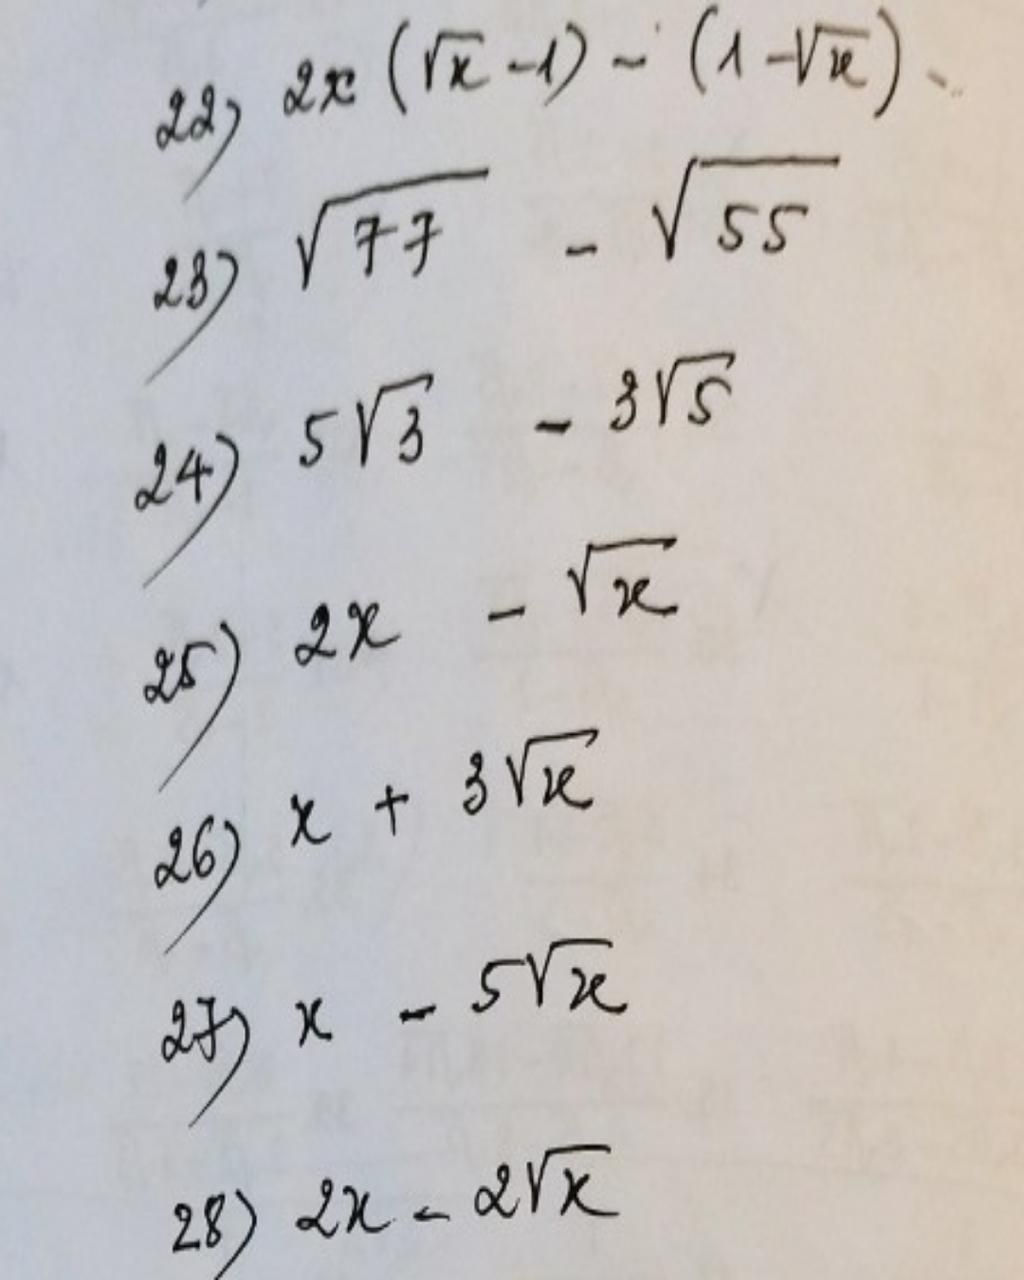 22) 2x (√x - 1) - (1 - √x)
23) √77 - √55
24) 5√3 - 3√5
25) 2x - √x
26) x + 3√x
27) x - 5√x
28) 2x - 2√x